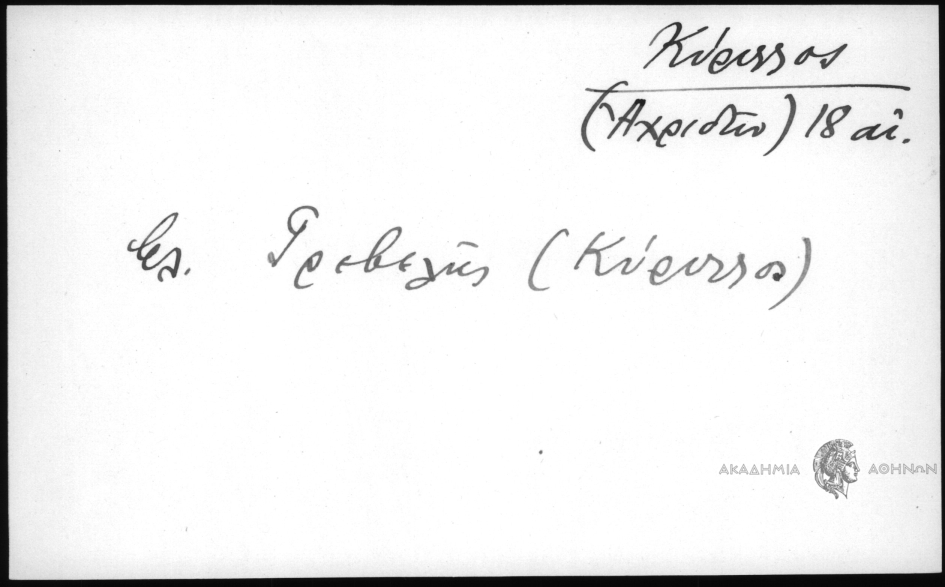 Κύριλλος
(Ἀχριδῶν) 18 αἰ.
βλ. Γρεβενῆς (Κύριλλος)
ΑΚΑΔΗΜΙΑ ΑΘΗΝΩΝ